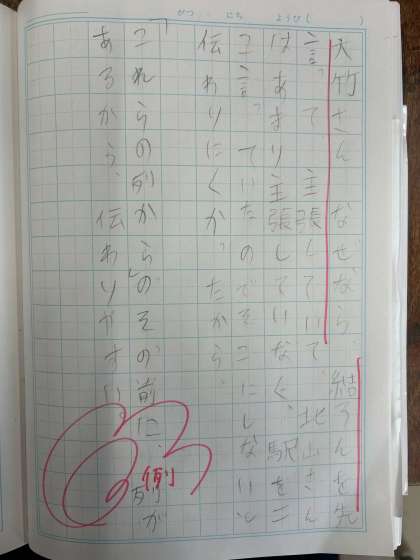 がつ にち ようび( )
大竹さん なぜなら 結ろんを先
言って主張していて 北山さん
はあまり主張してていなく、駅を
こ言っていたのでそこにしない
伝わりにくかったから
「これからの列から」のその前に、列が
あるから、伝わりやすい
例